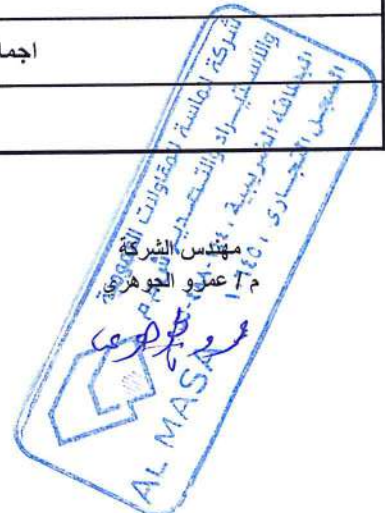 اجما
شركة الماسة للمقاولات العمومية
والاستيراد والتصدير ش.م.م
البطاقة الضريبية
السجل التجارى
AL MASA
مهندس الشركة
م / عمرو الجوهري